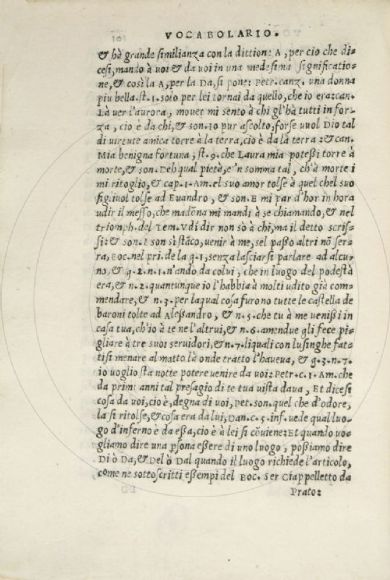 VOCABOLARIO.
& hà grande similianza con la dittione A, per cio che di-
cesi, mando à voi & da voi in una medesima significatio-
ne, & così la A, per la Da, si pone: Petr. canz. una donna
piu bella. st. 1. solo per lei tornai da quello, che io era: can.
Là ver l'aurora, mouer mi sento à chi gl'hà tutti in for-
za, cio è da chi, & son. io pur ascolto, forse vuol Dio tal
di virtute amica torre à la terra, cio è da la terra: & can.
Mia benigna fortuna, st. 9. che Laura mia potessi torre à
morte, & son. Deh qual pietà, e'n somma tal, ch'à morte i
mi ritoglio, & cap. 1. Am. el suo amor tolse à quel chel suo
figiuol tolse ad Euandro, & son. E mi par d'hor in hora
udir il messo, che madōna mi mandi à se chiamando, & nel
triomph. del Tem. Vdi dir non sò à chi, ma il detto scris-
si: & son: son sì stāco, uenir à me, sel passo altri nō serra,
Boc. nel pri. de la g. 1, senza lasciarsi parlare ad alcu-
no, & g. 2. n. 1. n'andò da colui, che in luogo del podestà
era, & n. 2. quantunque io l'habbia à molti udito già com-
mendare, & n. 3. per la qual cosa furono tutte le castella de
baroni tolte ad Alesandro, & n. 5. che tu à me uenissi in
casa tua, ch'io à te ne l'altrui, & n. 6. amendue gli fece pi-
gliare à tre suoi seruidori, & n. 7. liquali con lusinghe fat-
tisi menare al matto là onde tratto l'haueua, & g. 3. n. 7.
io uoglio sta notte potere uenire da uoi: Petr. c. 1. Am. che
da primi anni tal presagio di te tua vista daua, Et dicesi
cosa da voi, cio è, degna di voi, Pet. son. quel che d'odore,
la si ritolse, & cosa era da lui, Dan. c. 5. inf. vede qual luo-
go d'inferno è da essa, cio è à lei si cōuiene: Et quando vo-
gliamo dire una psona essere di uno luogo, possiamo dire
Di ò Da, & Del ò Dal quando il luogo richiede l'articolo,
come ne sottoscritti essempi del Boc. Ser Ciappelletto da
Prato: